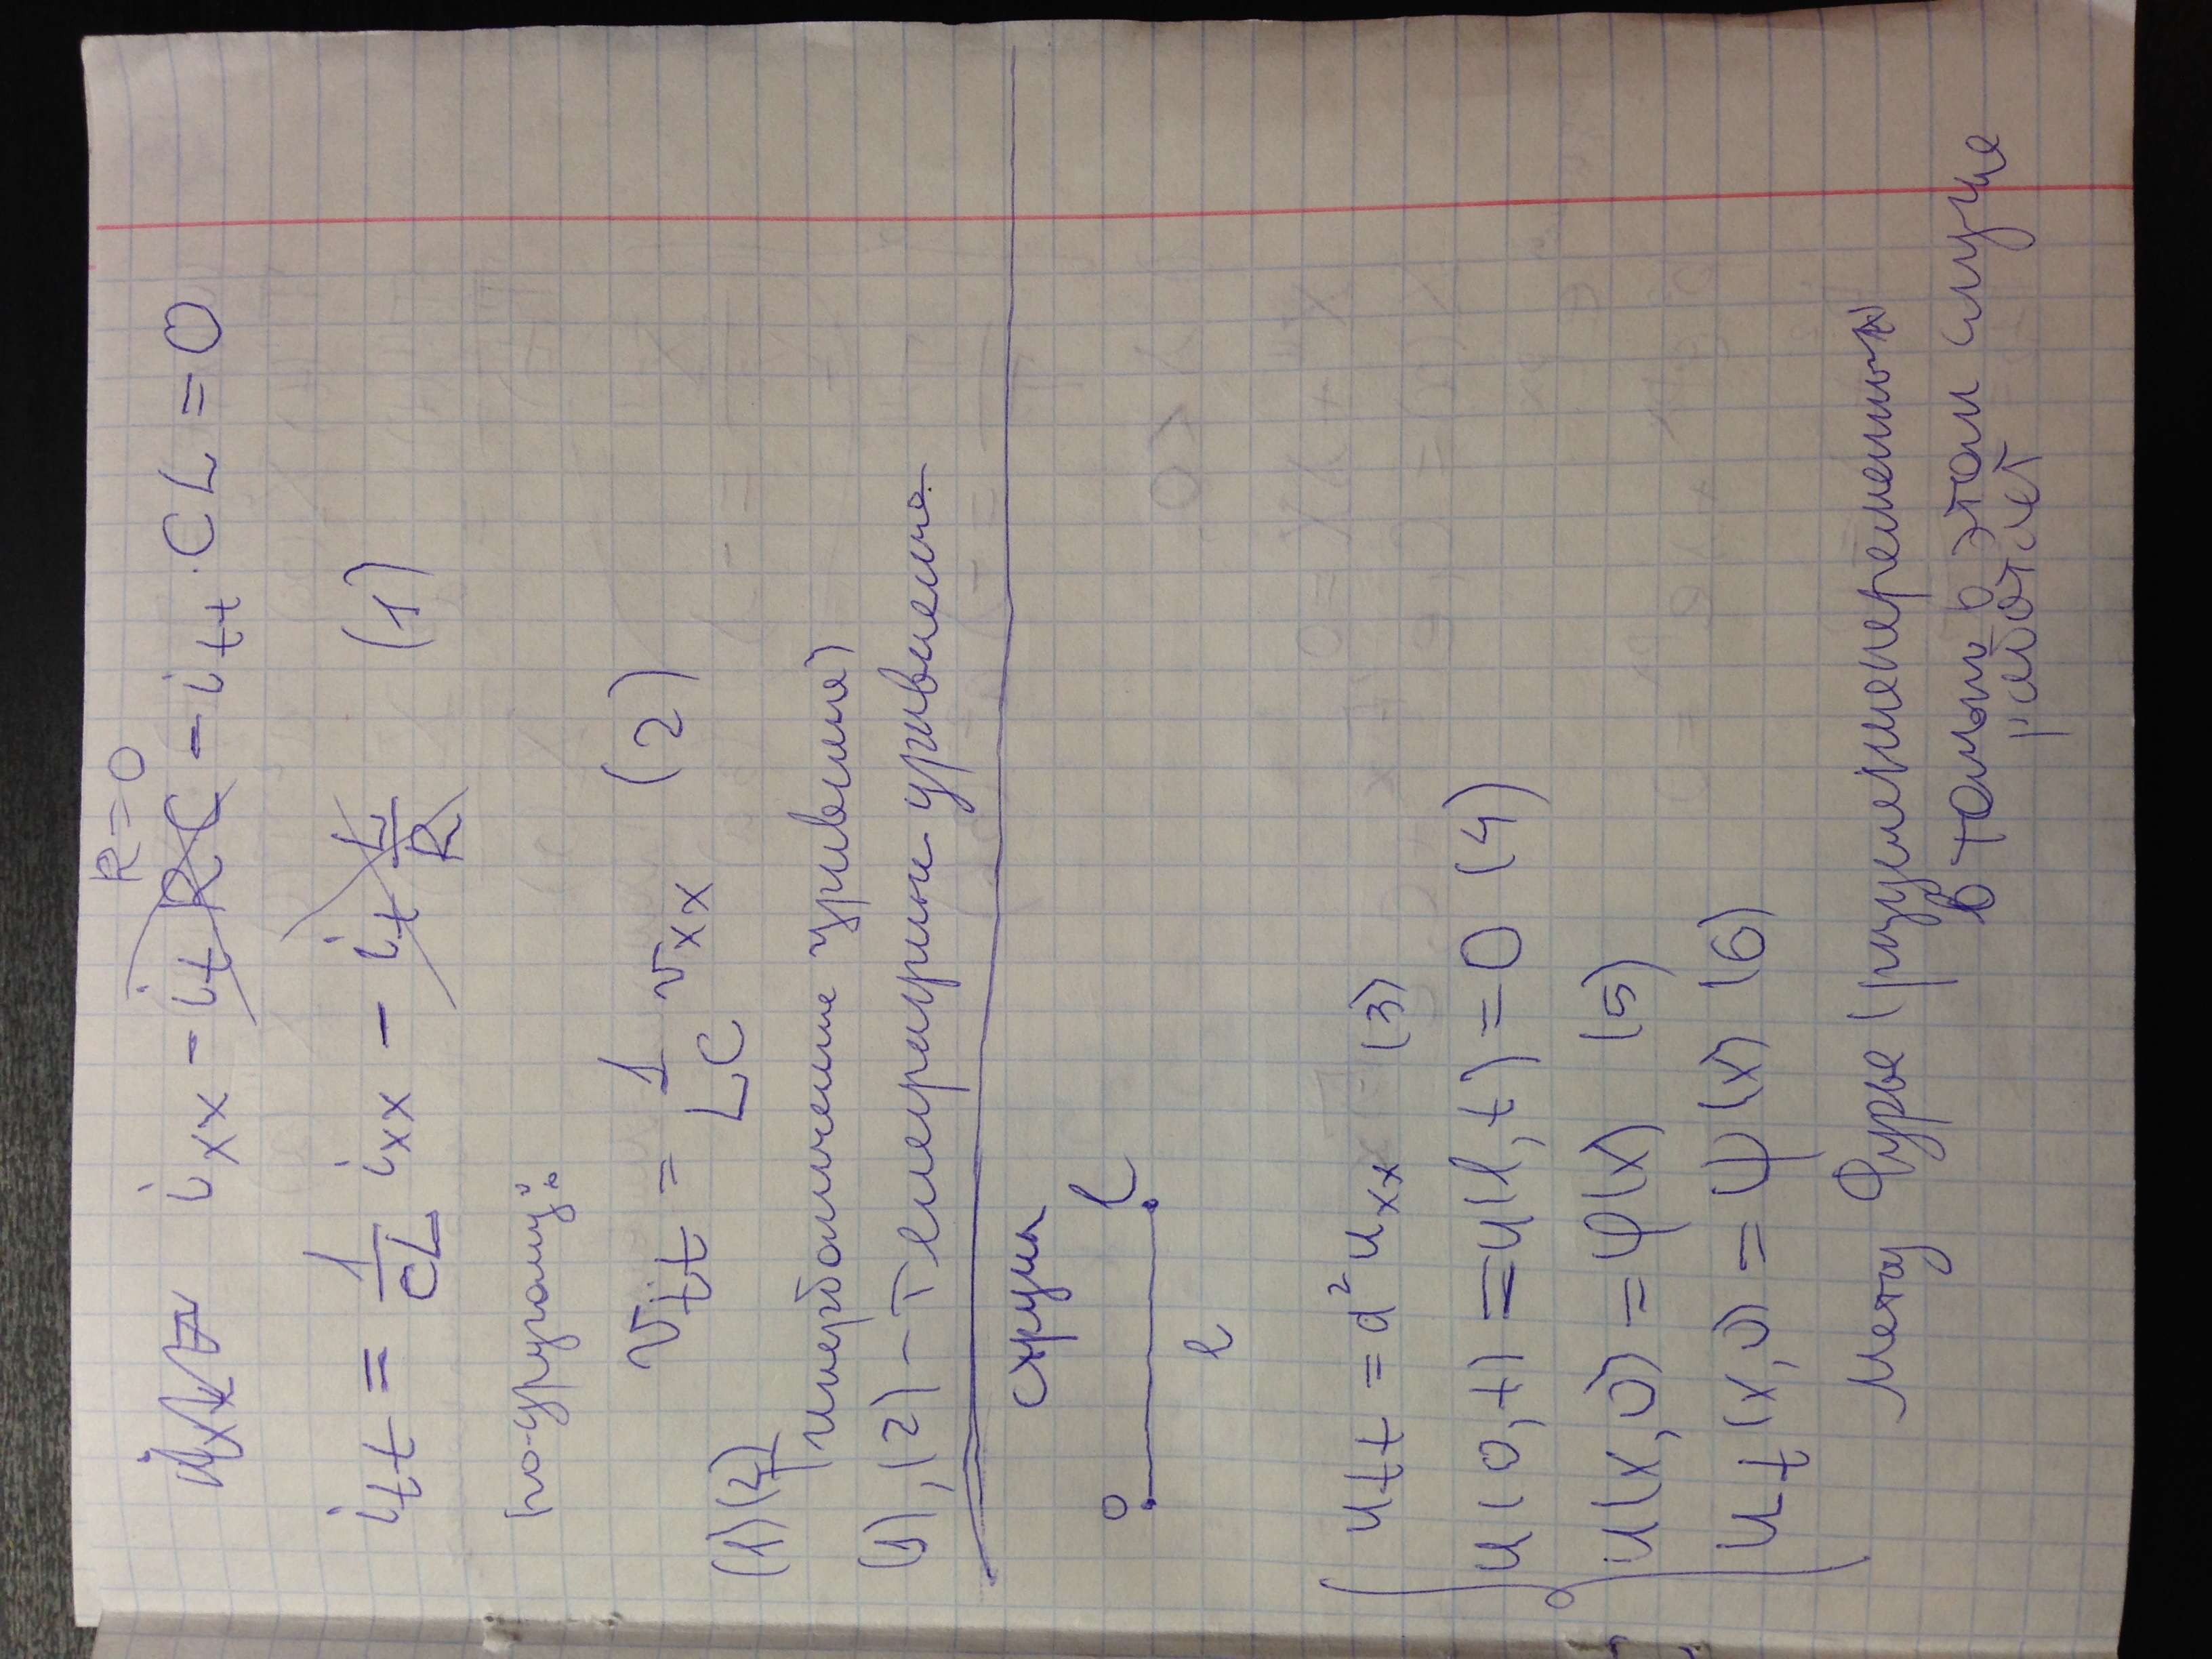 R=0
i_xx - i_t RC - i_tt · CL = 0
i_tt = 1/CL i_xx - i_t L/R (1)
по-другому:
v_tt = 1/LC v_xx (2)
(1)(2) гиперболические уравнение)
(1),(2) - Телеграфные уравнения.
струна
0 l
l
u_tt = a² u_xx (3)
u(0,t) = u(l,t) = 0 (4)
u(x,0) = φ(x) (5)
u_t(x,0) = ψ(x) (6)
Метод Фурье (разделение переменных)
только в этом случае
работает